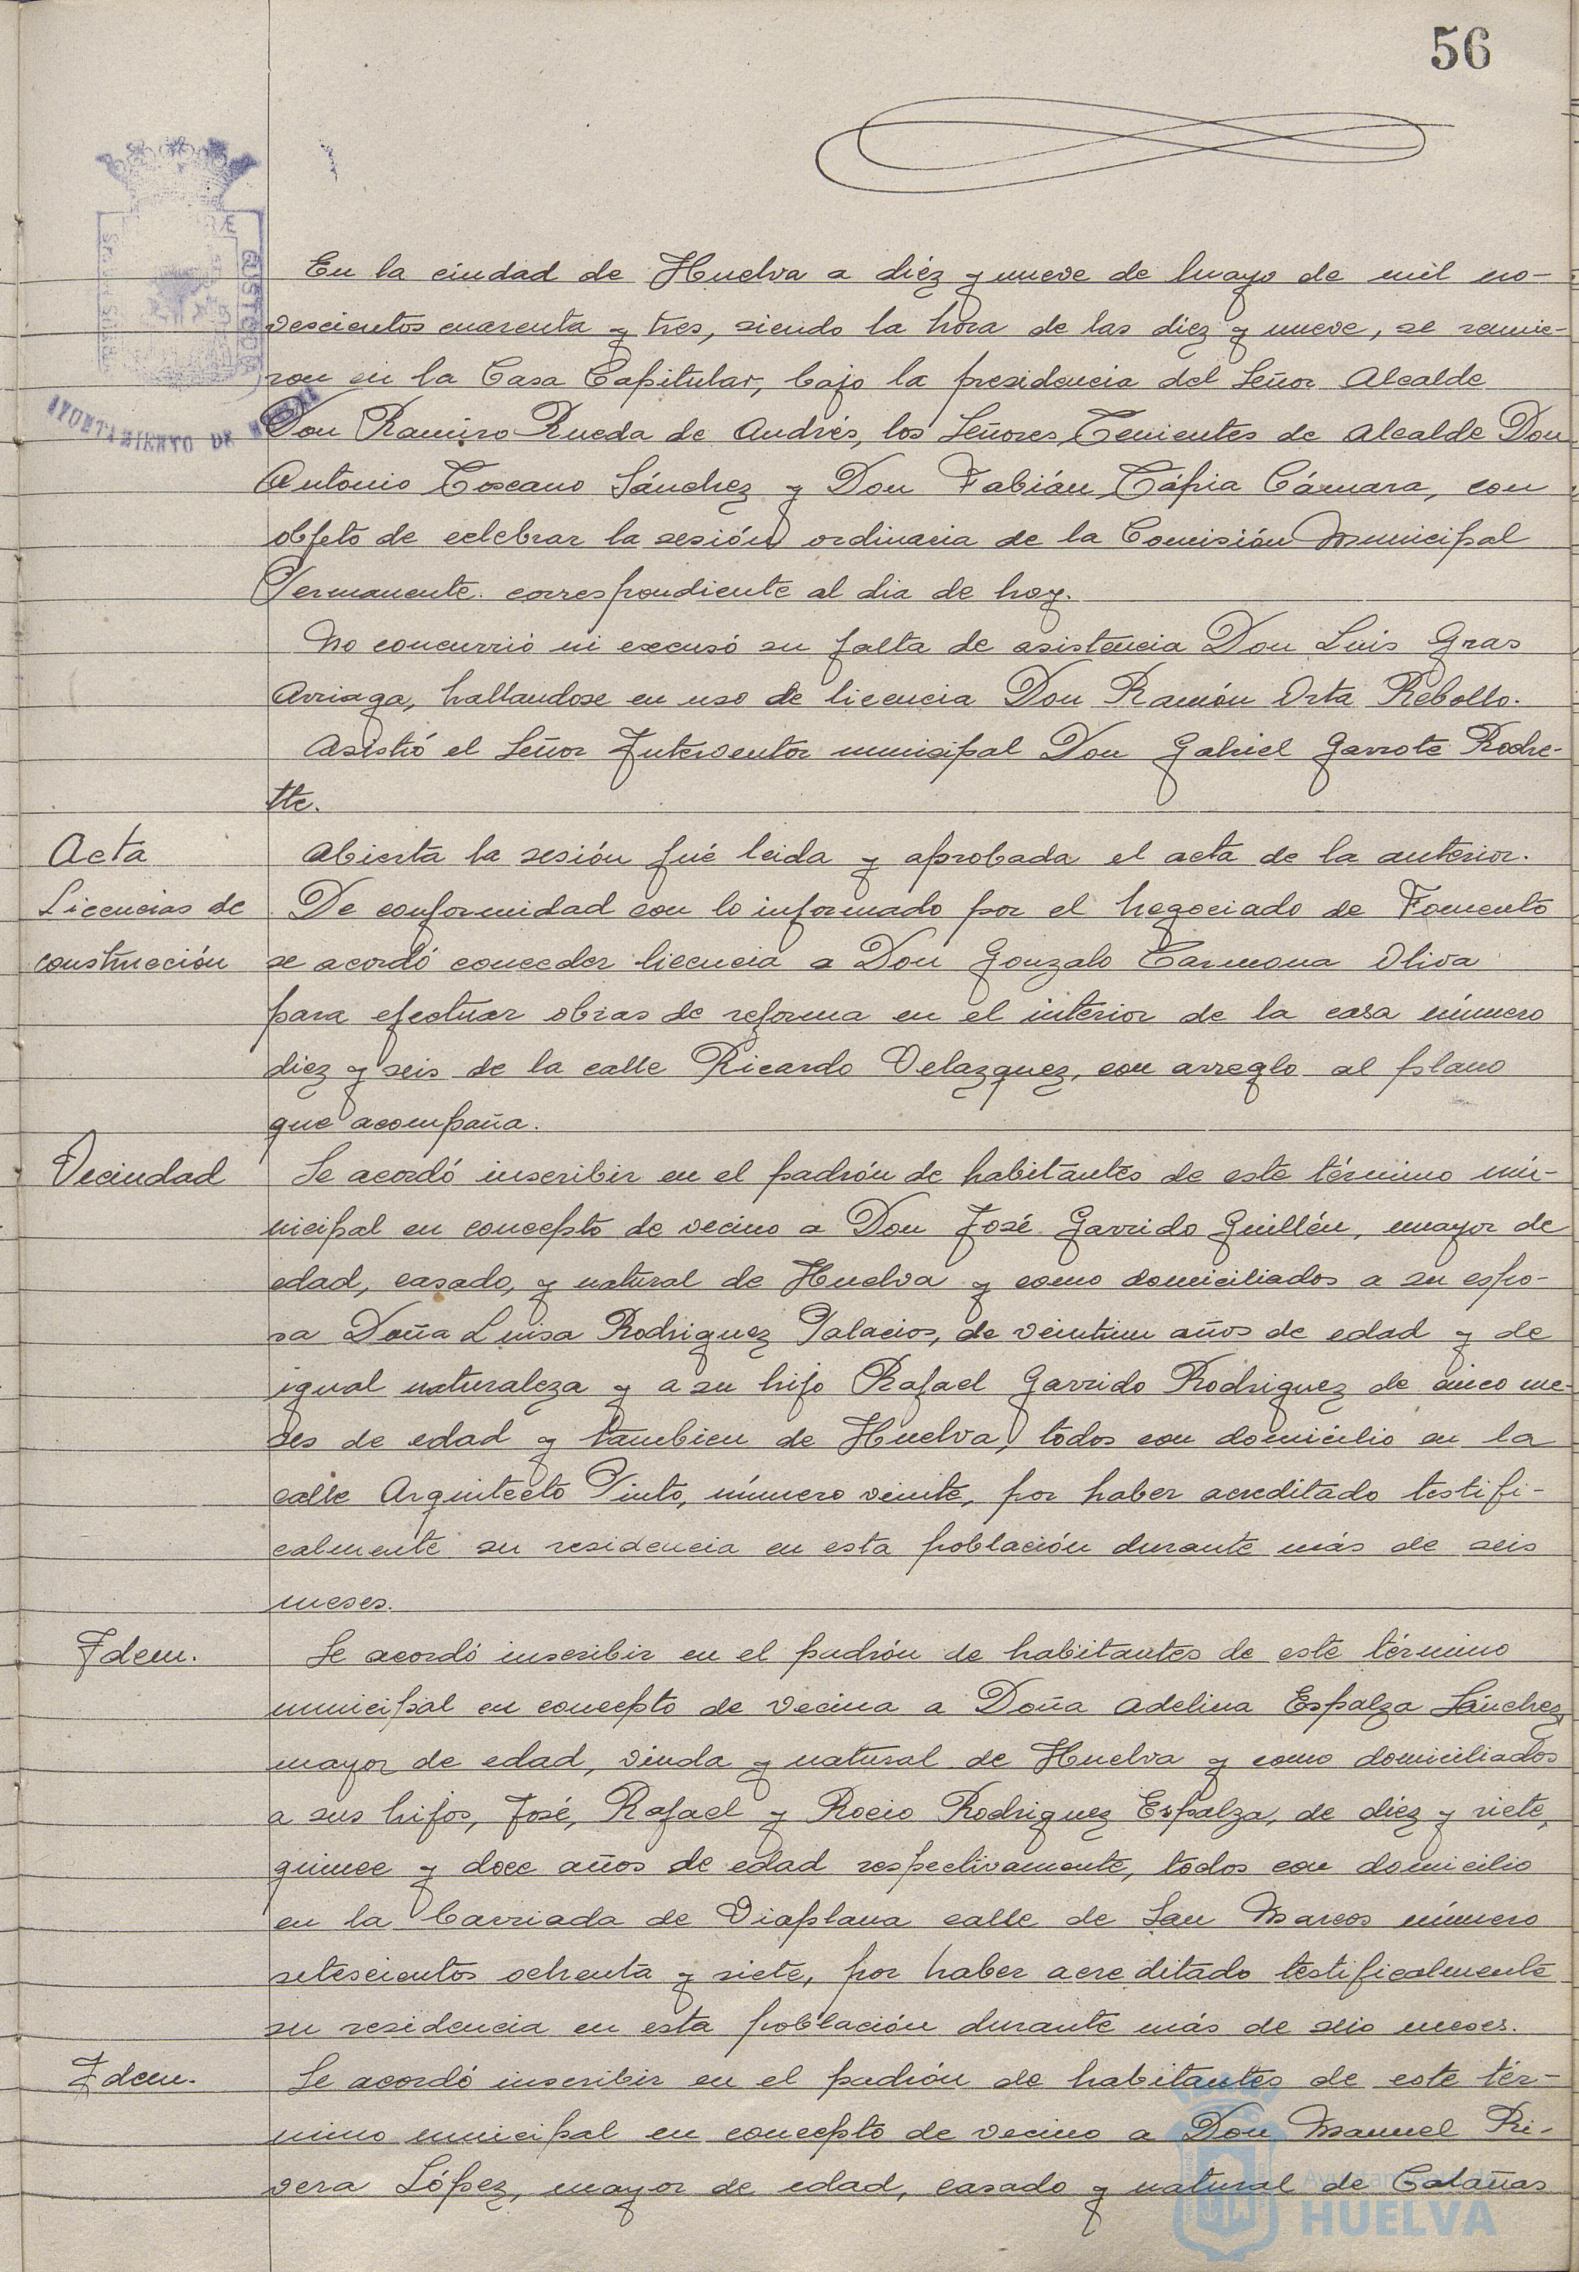 56
En la ciudad de Huelva a diéz y nueve de Mayo de mil no-
vescientos cuarenta y tres, siendo la hora de las diez y nueve, se reunie-
ron en la Casa Capitular, bajo la presidencia del Señor Alcalde
AYUNTAMIENTO DE
Don Ramiro Rueda de Andrés, los Señores Tenientes de Alcalde Don
Antonio Toscano Sánchez y Don Fabián Tápia Cámara, con
objeto de celebrar la sesión ordinaria de la Comisión Municipal
Permanente. correspondiente al dia de hoy.
No concurrió ni excusó su falta de asistencia Don Luis Gras
Arriaga, hallandose en uso de licencia Don Ramón Orta Rebollo.
Asistió el Señor Interventor municipal Don Gabriel Garrote Rodre-
tte.
Acta
Abierta la sesión fué leida y aprobada el acta de la anterior.
Licencias de
De conformidad con lo informado por el Negociado de Fomento
construcción
se acordó conceder licencia a Don Gonzalo Carmona Oliva
para efectuar obras de reforma en el interior de la casa número
diez y seis de la calle Ricardo Velazquez, con arreglo al plano
que acompaña.
Vecindad
Se acordó inscribir en el padrón de habitantes de este término mu-
nicipal en concepto de vecino a Don José Garrido Guillén, mayor de
edad, casado, y natural de Huelva y como domiciliados a su espo-
sa Doña Luisa Rodriguez Palacios, de veintiun años de edad y de
igual naturaleza y a su hijo Rafael Garrido Rodriguez de cinco me-
ses de edad y tambien de Huelva, todos con domicilio en la
calle Arquitecto Pinto, número veinte, por haber acreditado testifi-
calmente su residencia en esta población durante más de seis
meses.
Idem.
Se acordó inscribir en el padrón de habitantes de este término
municipal en concepto de vecina a Doña Adelina Espalza Sánchez,
mayor de edad, viuda y natural de Huelva y como domiciliados
a sus hijos, José, Rafael y Rocio Rodriguez Espalza, de diez y siete,
quince y doce años de edad respectivamente, todos con domicilio
en la barriada de Viaplana calle de San Marcos número
setescientos ochenta y siete, por haber acreditado testificalmente
su residencia en esta población durante más de seis meses.
Idem.
Se acordó inscribir en el padrón de habitantes de este tér-
mino municipal en concepto de vecino a Don Manuel Ri-
vera López, mayor de edad, casado y natural de Calañas
Ayuntamiento de
HUELVA